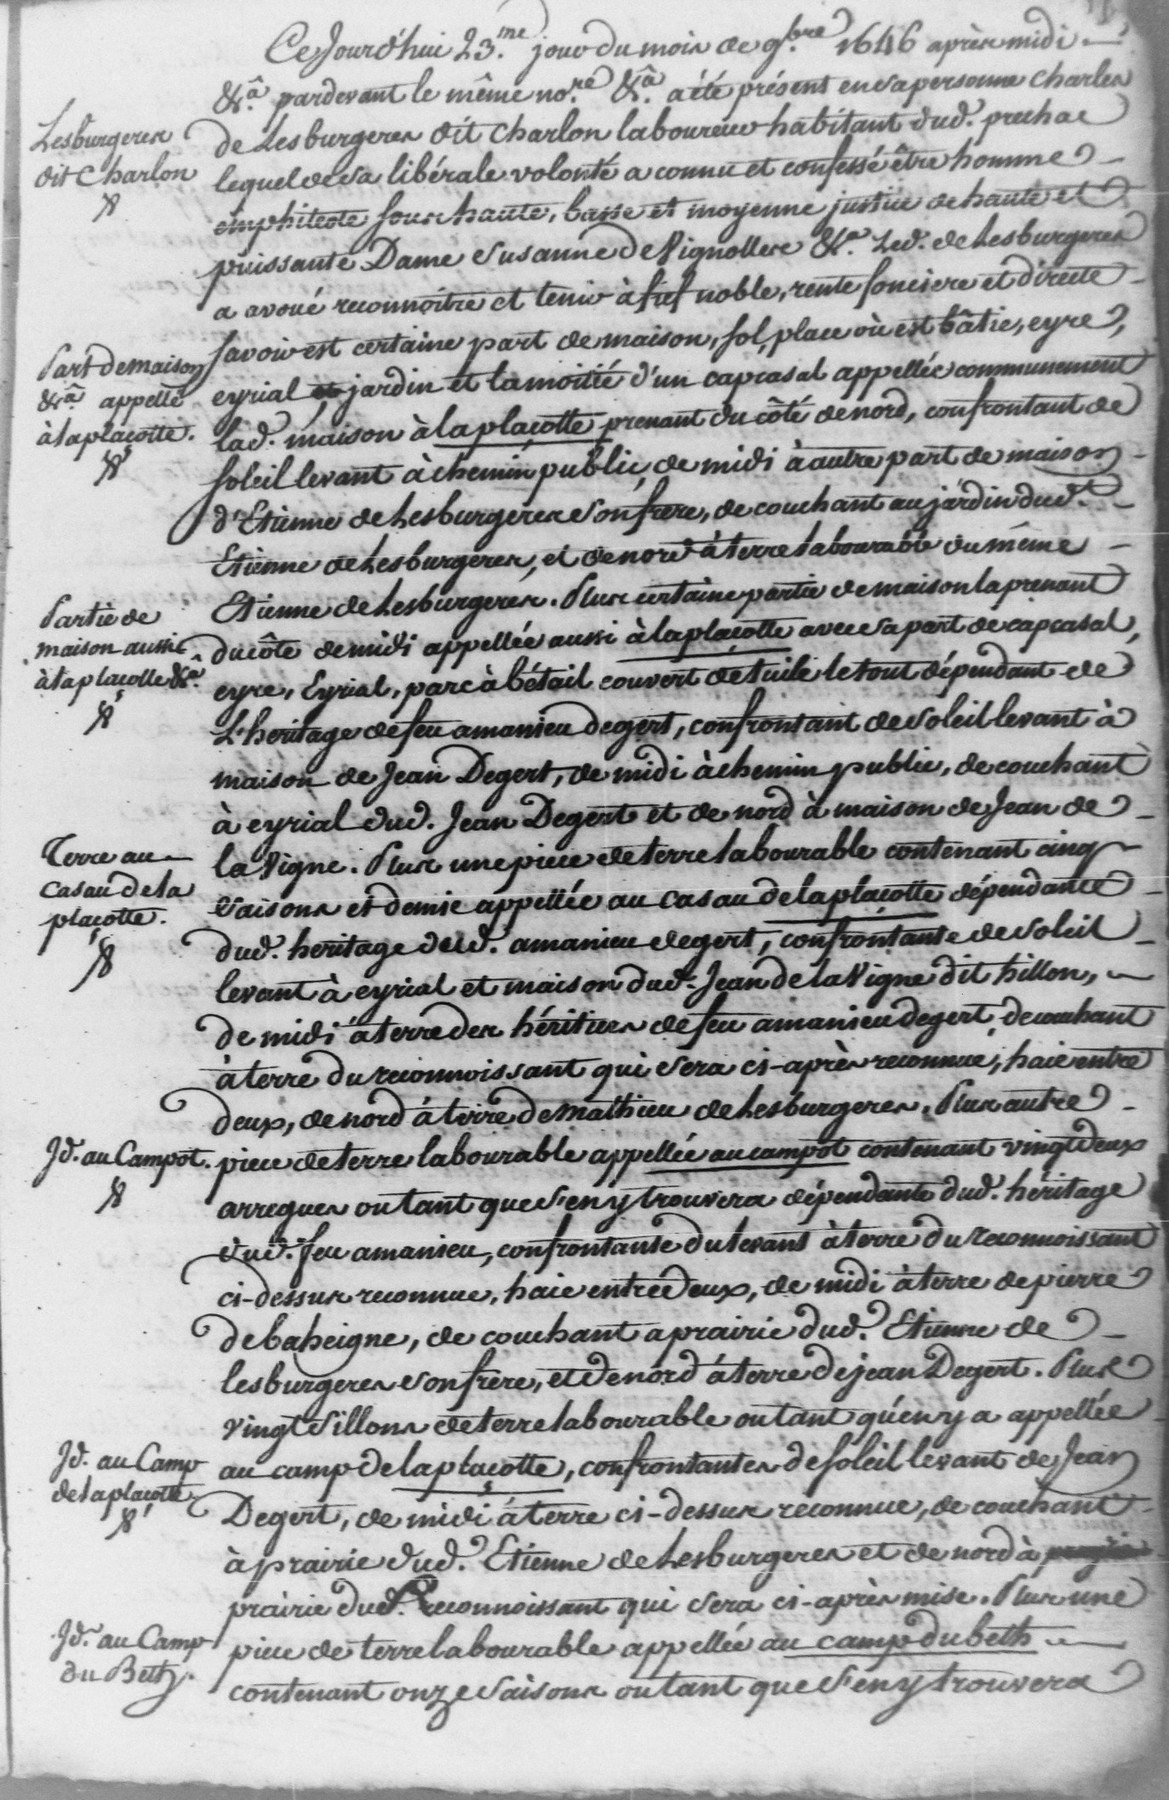 Ce Jourd'hui 23.me jour du mois de 9.bre 1646 après midi
&.a pardevant le même no.re &.a a été présent en sa personne Charles
Lesburgeres
dit Charlon
de Lesburgeres dit Charlon laboureur habitant dud. prechac
lequel de sa libérale volonté a connu et confessé être homme
emphiteote sous haute, basse et moyenne justice de haute et
puissante Dame Susanne de Vignolles &.a Led. de Lesburgeres
a avoué reconnoitre et tenir à fief noble, rente fonciere et directe
savoir est certaine part de maison, sol, place où est bâtie, eyre,
Part de maison
&.a appellé
à la plaçotte.
eyrial et jardin et la moitié d'un capcasal appellée communement
lad. maison à la plaçotte prenant du côté de nord, confrontant de
soleil levant à chemin public, de midi à autre part de maison
d'Etienne de Lesburgeres son frere, de couchant au jardin dud.
Etienne de Lesburgeres, et de nord à terre labourable du même
Etienne de Lesburgeres. Plus certaine partie de maison la prenant
Partie de
maison aussi
à la plaçotte &.a
du côté de midi appellée aussi à la plaçotte avec sa part de capcasal,
eyre, Eyrial, parc à bétail couvert de tuile le tout dépendant de
L'heritage de feu amanieu degert, confrontant de soleil levant à
maison de Jean Degert, de midi à chemin public, de couchant
à eyrial dud. Jean Degert et de nord à maison de Jean de
Terre au
casau de la
plaçotte.
la Vigne. Plus une piece de terre labourable contenant cinq
saisons et demie appellée au casau de la plaçotte dépendante
dud. heritage dud. amanieu degert, confrontante de soleil
levant à eyrial et maison dud. Jean de la Vigne dit hillon,
de midi à terre des héritiers de feu amanieu degert, de couchant
à terre du reconnoissant qui sera ci-après reconnue, haie entre
deux, de nord à terre de Mathieu de Lesburgeres. Plus autre
Jd. au Campot.
piece de terre labourable appellée au campot contenant vingt deux
arregues ou tant que s'en y trouvera dépendante dud. héritage
dud. feu amanieu, confrontante du levant à terre du reconnoissant
ci-dessus reconnue, haie entre deux, de midi à terre de pierre
de baheigne, de couchant a prairie dud. Etienne de
lesburgeres son frère, et de nord à terre de jean Degert. Plus
vingt sillons de terre labourable ou tant qu'en y a appellée
Jd. au Camp
de la plaçotte
au camp de la plaçotte, confrontantes de soleil levant de Jean
Degert, de midi à terre ci-dessus reconnue, de couchant
à prairie dud. Etienne de Lesburgeres et de nord à
prairie dud. reconnoissant qui sera ci-après mise. Plus une
Jd. au Camp
du Beth.
piece de terre labourable appellée au camp du beth
contenant onze saisons ou tant que s'en y trouvera